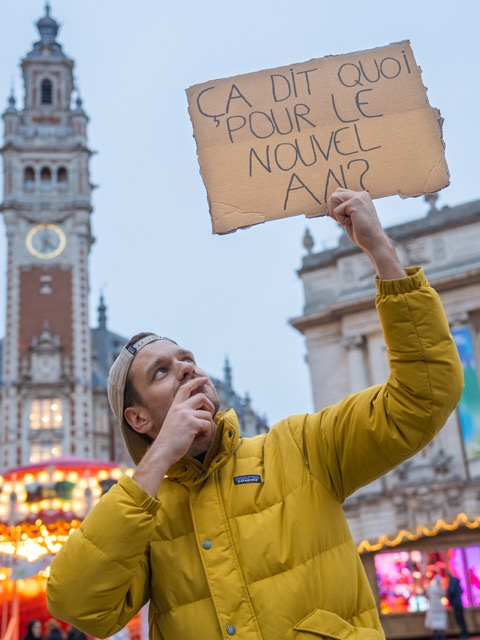 ÇA DIT QUOI
POUR LE
NOUVEL
AN?
patagonia